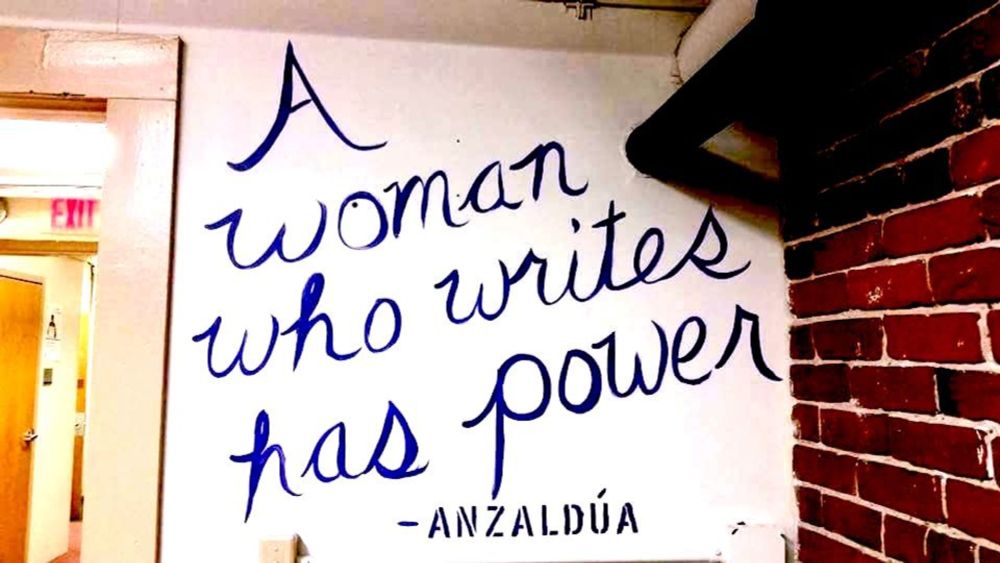 A
woman
who writes
has power
-ANZALDÚA
EXIT